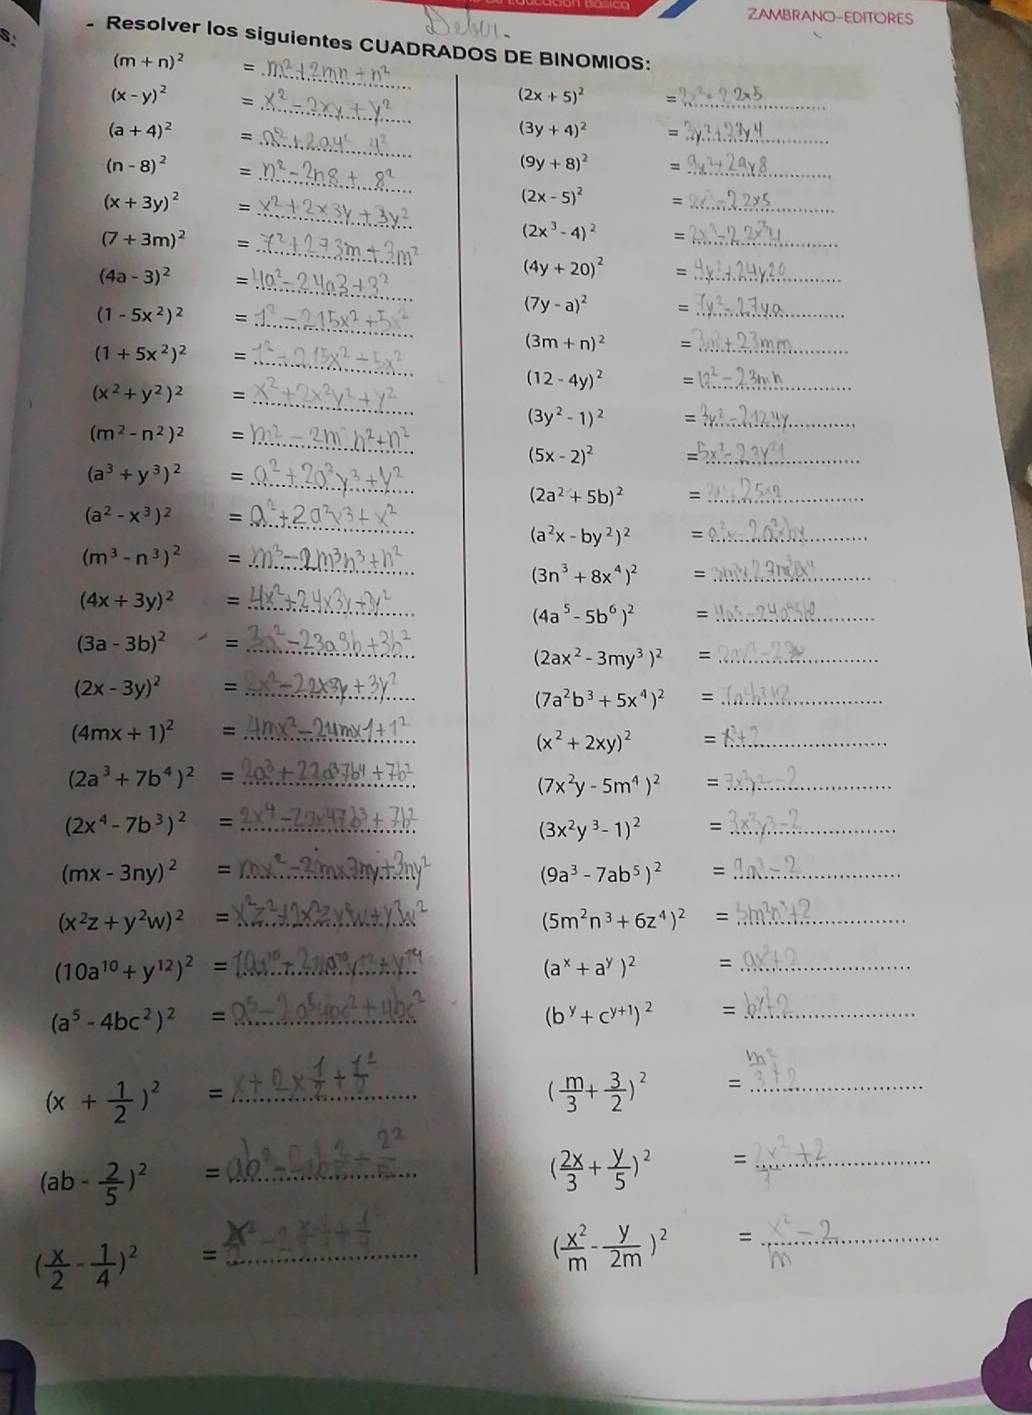 Educación Básica
ZAMBRANO-EDITORES
S:
Deber.
- Resolver los siguientes CUADRADOS DE BINOMIOS:
(m + n)² = m²+2mn+n²
(x - y)² = x²-2xy+y²
(a + 4)² = a²+2a4 4²
(n - 8)² = n²-2n8+8²
(x + 3y)² = x²+2x3y+3y²
(7 + 3m)² = 7²+273m+3m²
(4a - 3)² = 4a²-24a3+3²
(1 - 5x²)² = 1²-215x²+5x²
(1 + 5x²)² = 1²+215x²+5x²
(x² + y²)² = x²+2x²y²+y²
(m² - n²)² = m²-2m²n²+n²
(a³ + y³)² = a²+2a³y³+y²
(a² - x³)² = a²+2a²x3+x²
(m³ - n³)² = m³-2m³n³+n²
(4x + 3y)² = 4x²+24x3y+3y²
(3a - 3b)² = 3a²-23a3b+3b²
(2x - 3y)² = 2x²-22x3y+3y²
(4mx + 1)² = 4mx²-24mx1+1²
(2a³ + 7b⁴)² = 2a³+22a³7b⁴+7b²
(2x⁴ - 7b³)² = 2x⁴-22x47b³+7b²
(mx - 3ny)² = mx²-2mx3ny+3ny²
(x²z + y²w)² = x²z²+2x²zy²w+y²w²
(10a¹⁰ + y¹²)² =
(a⁵ - 4bc²)² = a⁵-2a⁵4bc²+4bc²
(x + 1/2)² = x+2x 1/2 + 1²/2
(ab - 2/5)² = ab²
(x/2 - 1/4)² = x²/2
(2x + 5)² = 2x²+2 2x5
(3y + 4)² = 3y²+23y4
(9y + 8)² = 9y²+29y8
(2x - 5)² = 2x²-22x5
(2x³ - 4)² = 2x³-22x³4
(4y + 20)² = 4y²+24y20
(7y - a)² = 7y²-27ya
(3m + n)² = +23mn
(12 - 4y)² = 12²-23mn
(3y² - 1)² = 3y²-2124y
(5x - 2)² = 5x²-23y²1
(2a² + 5b)² = 25x2
(a²x - by²)² = a²x-2a²xby
(3n³ + 8x⁴)² =
(4a⁵ - 5b⁶)² = 4a⁵-24a⁵5b⁶
(2ax² - 3my³)² =
(7a²b³ + 5x⁴)² = 7a²b³+2
(x² + 2xy)² = x²+2
(7x²y - 5m⁴)² = 7x²y²-2
(3x²y³ - 1)² = 3x²y³-2
(9a³ - 7ab⁵)² = 9a³-2
(5m²n³ + 6z⁴)² = 5m²n³+2
(aˣ + aʸ)² = ax²+2
(bʸ + cʸ⁺¹)² = by+2
(m/3 + 3/2)² = m²/3 +2
(2x/3 + y/5)² = 2x²/3 +2
(x²/m - y/2m)² = x²/m -2